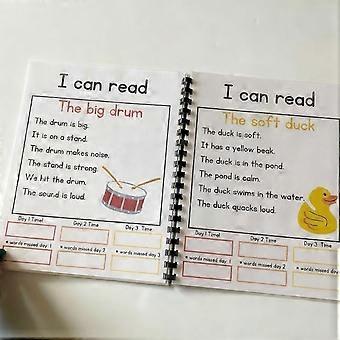 I can read
The big drum
The drum is big.
It is on a stand.
The drum makes noise.
The stand is strong.
We hit the drum.
The sound is loud.
Day 1 Time!
Day 2 Time
Day 3 Time
* words missed day 1
* words missed day 2
* words missed day 3
I can read
The soft duck
The duck is soft.
It has a yellow beak.
The duck is in the pond.
The pond is calm.
The duck swims in the water.
The duck quacks loud.
Day 1 Time!
Day 2 Time
Day 3 Time
* words missed day 1
* words missed day 2
* words missed day 3